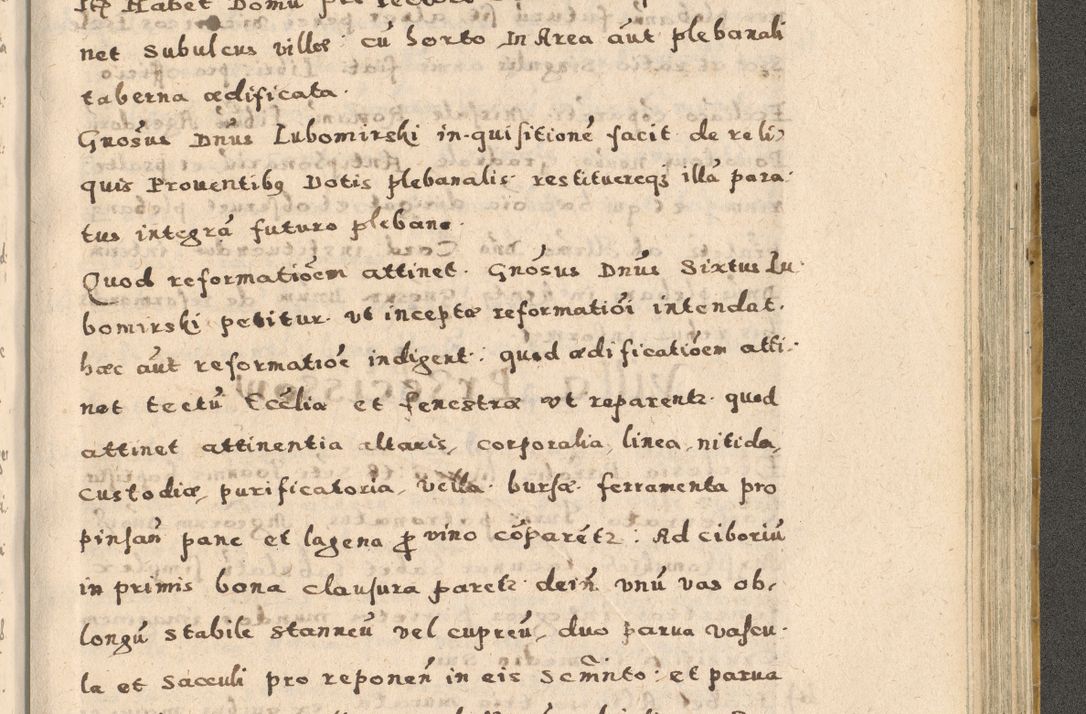 Itē Habet Domū pro
net Subulcus villæ cū horto, In Area aūt plebanali
taberna ædificata.
Gnōsus Dnūs Lubomirski in-quisitionē facit de reli-
quis Prouentibꝰ Dotis plebanalis restituereqꝫ illā para-
tus integrā futuro plebano.
Quod reformatiōēm attinet. Gnōsus Dnūs Sixtus Lu-
bomirski petitur vt inceptæ reformatiōi intendat.
hæc aūt reformatiōē indigent: quod ædificatiōēm atti-
net tectū Eccliæ et fenestræ vt reparentꝛ quod
attinet attinentia altaris, corporalia, linea, nitida,
custodiæ, purificatoria, vella bursæ ferramenta pro
pinsan̄ pane et lagena ꝓ vino cōparētꝛ: Ad ciboriū
in primis bona clausura paretꝛ dein̄ vnū vas ob-
longū stabile stanneū vel cupreū, duo parua vascu-
la et Sacculi pro reponen̄ in eis Scm̄nto: et parua